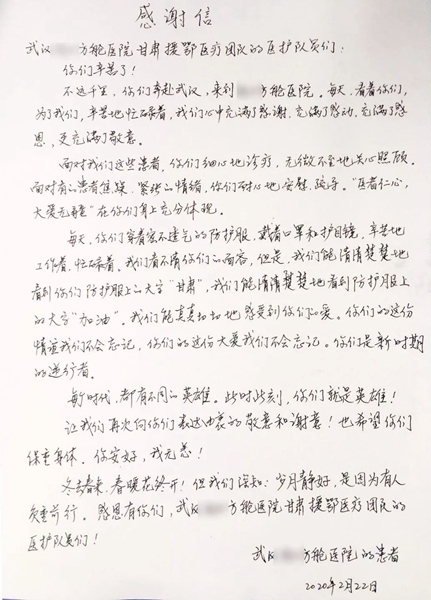 感谢信
武汉 方舱医院甘肃援鄂医疗团队的医护队员们：
你们辛苦了！
不远千里，你们奔赴武汉，来到 方舱医院。每天，看着你们，
为了我们，辛苦地忙碌着，我们心中充满了感谢，充满了感动，充满了感
恩，更充满了敬意。
面对我们这些患者，你们细心地诊疗，无微不至地关心照顾。
面对有的患者焦躁、紧张的情绪，你们耐心地安慰、疏导。“医者仁心，
大爱无疆”在你们身上充分体现。
每天，你们穿着密不透气的防护服，戴着口罩和护目镜，辛苦地
工作着，忙碌着。我们看不清你们的面容，但是，我们能清清楚楚地
看到你们防护服上的大字“甘肃”，我们能清清楚楚地看到防护服上
的大字“加油”。我们能真真切切地感受到你们的爱。你们的这份
情谊我们不会忘记，你们的这份大爱我们不会忘记。你们是新时期
的逆行者。
每个时代，都有不同的英雄。此时此刻，你们就是英雄！
让我们再次向你们表达由衷的敬意和谢意！也希望你们
保重身体。你安好，我无恙！
冬去春来，春暖花终开！但我们深知：岁月静好，是因为有人
负重前行。感恩有你们，武汉 方舱医院甘肃援鄂医疗团队的
医护队员们！
武汉 方舱医院的患者
2020年2月22日